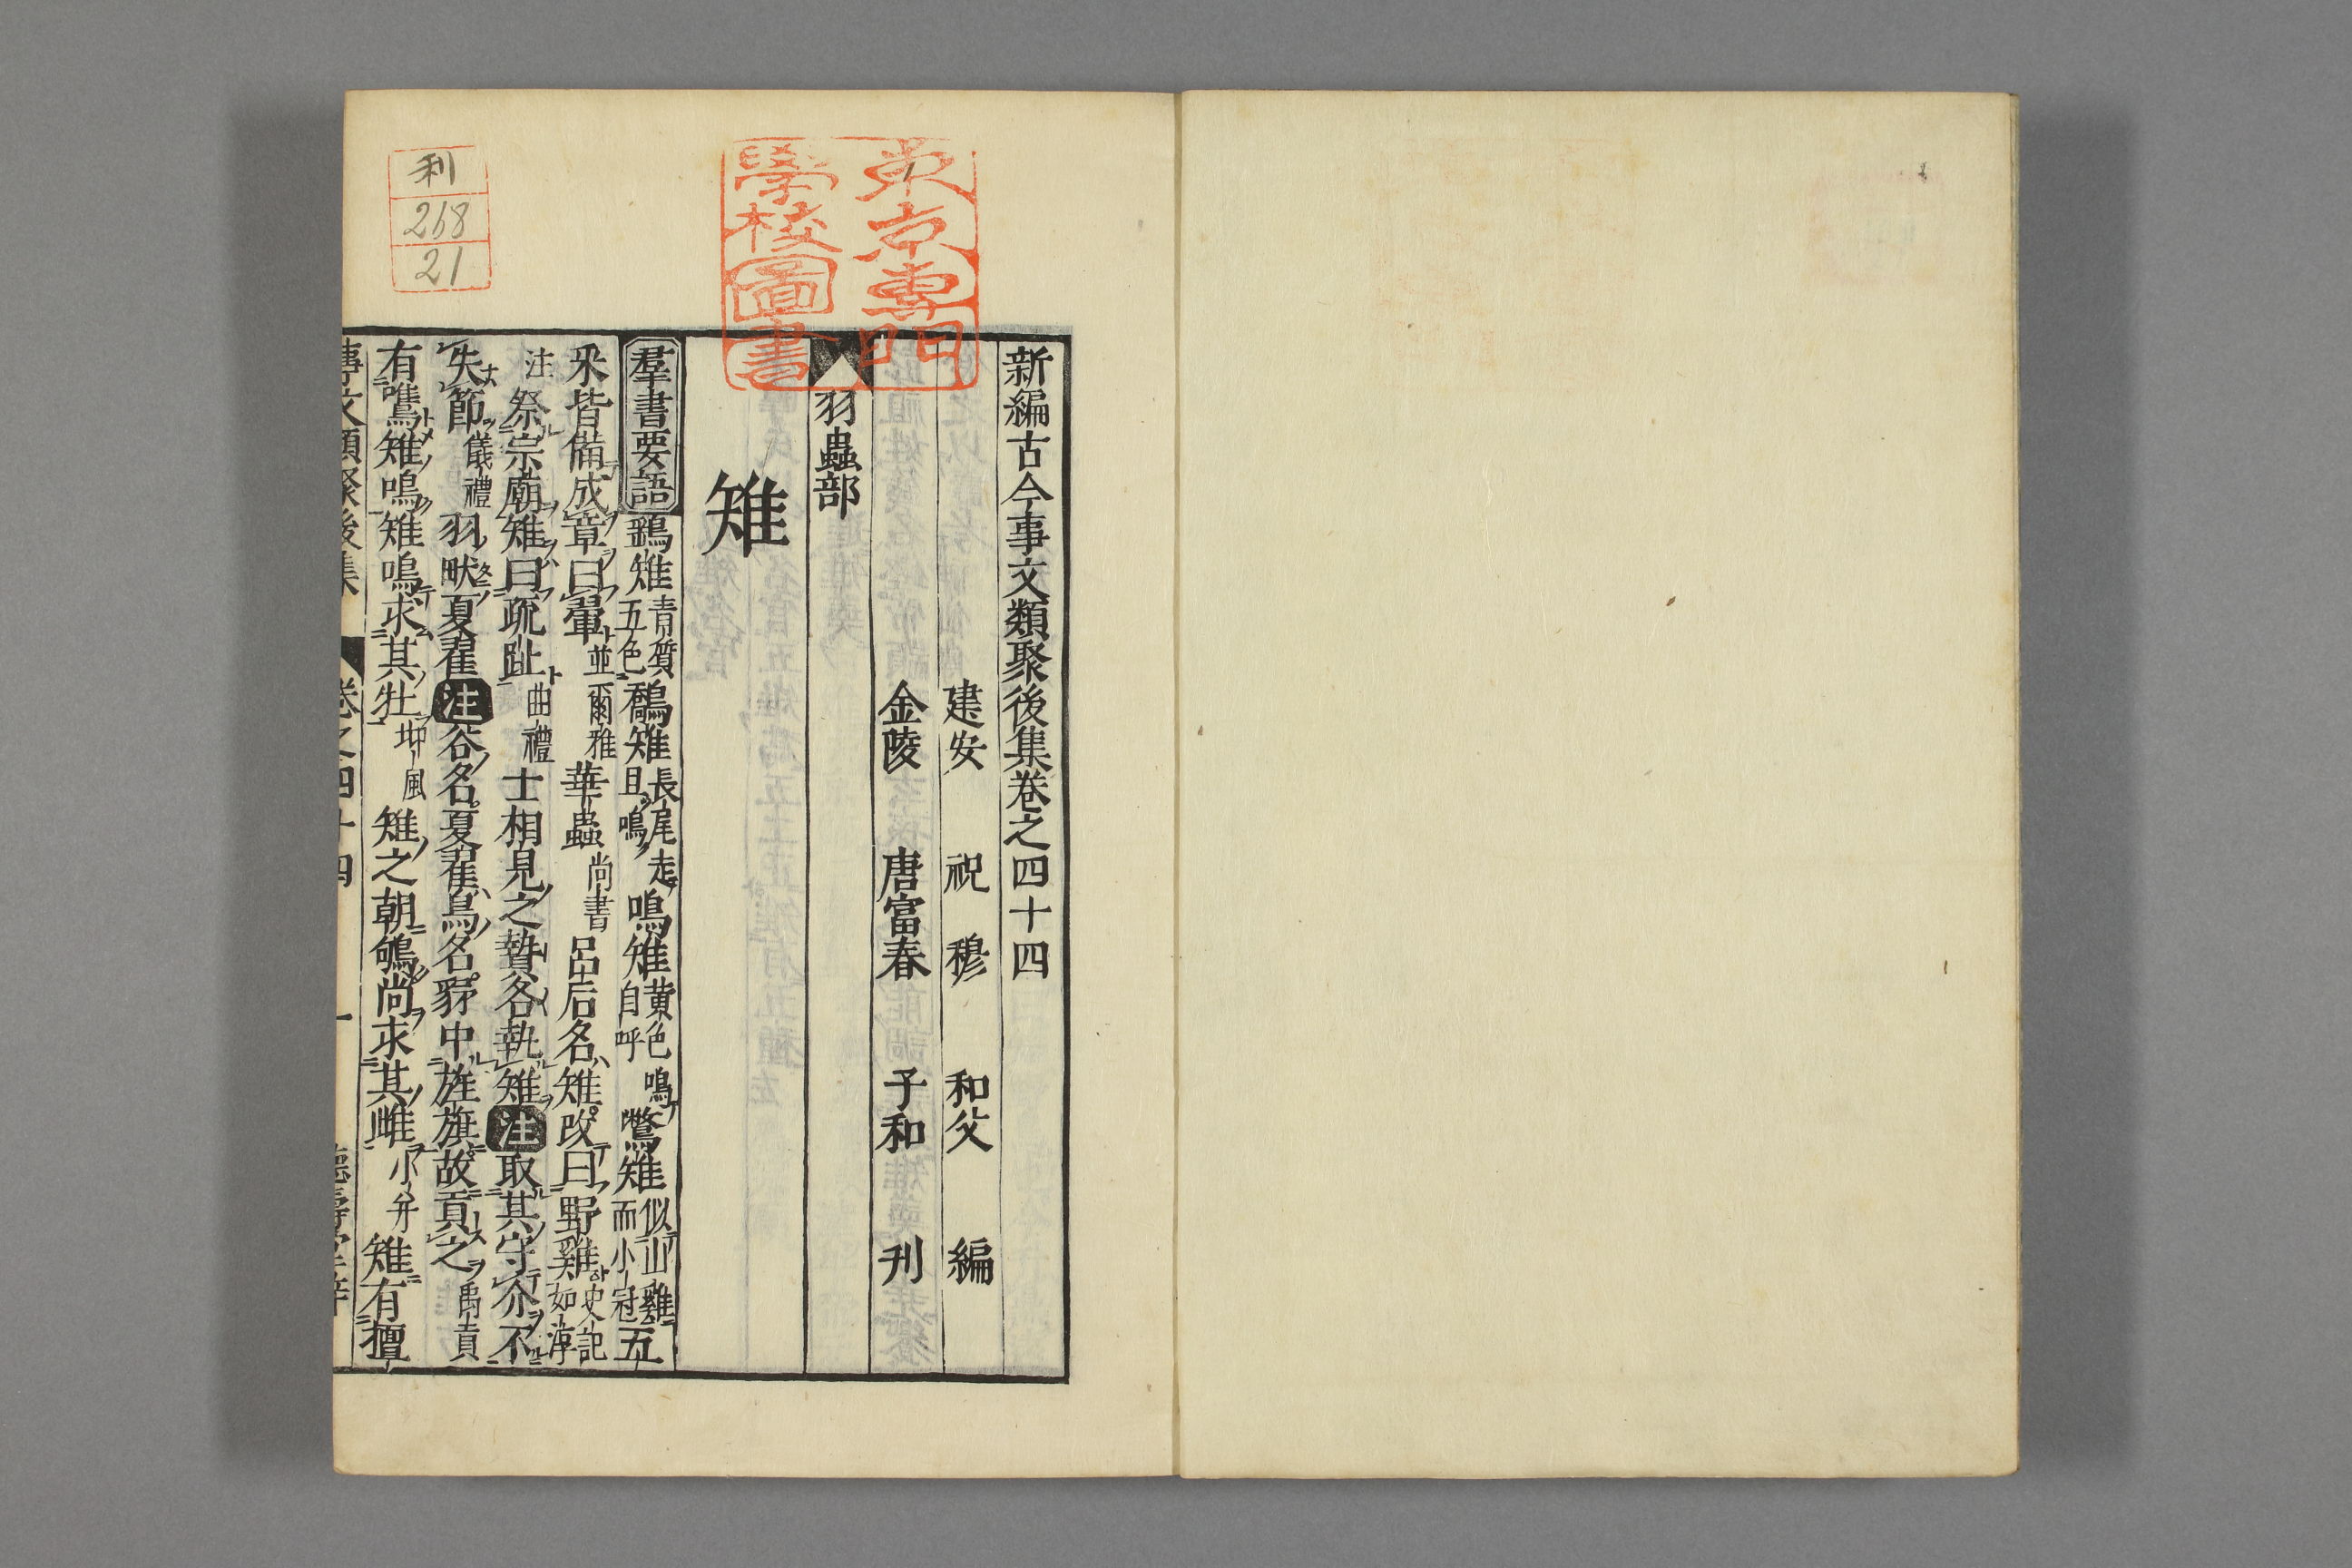 新編古今事文類聚後集卷之四十四
建安 祝穆 和父 編
金陵 唐富春 子和 刊
羽蟲部
雉
羣書要語 鷂雉青質五色 鷮雉長尾走且鳴 鳴雉黄色鳴自呼 鷩雉似山雞而小冠 五
采皆備成章曰翬並爾雅 華蟲尚書 呂后名雉改曰野雞史記如淳
注 祭宗廟雉曰疏趾曲禮 士相見之贄各執雉注取其守介不
失節儀禮 羽畎夏翟注谷名夏翟鳥名 中旌旗故貢之禹貢
有鷕雉鳴雉鳴求其牡邶風 雉之朝鴝尚求其雌小弁 雉有擅
事文類聚後集 卷之四十四 一
東京專門
學校圖書
利
268
21